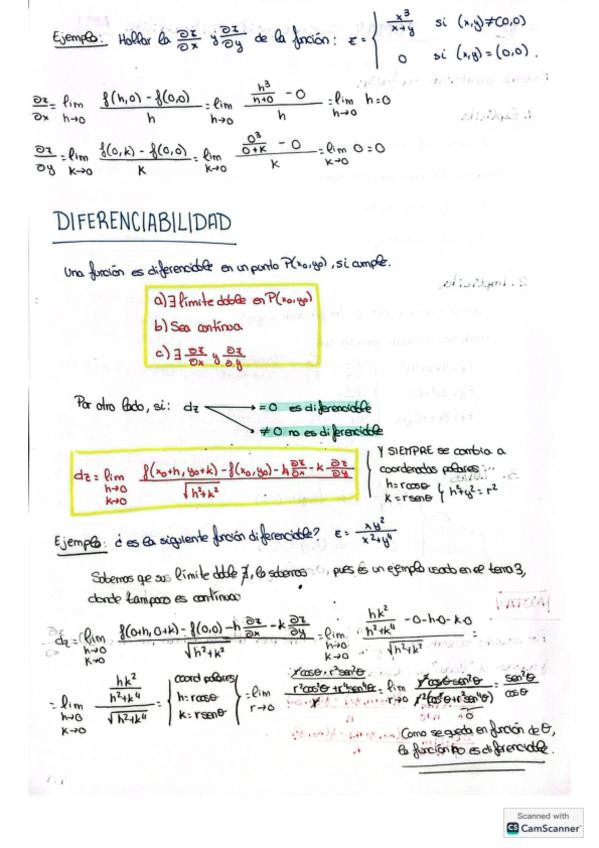 Ejemplo: Hallar la ∂z/∂x y ∂z/∂y de la función: z = { x³/(x+y) si (x,y)≠(0,0)
0 si (x,y) = (0,0).
∂z/∂x = lim h→0 (f(h,0) - f(0,0))/h = lim h→0 (h³/(h+0) - 0)/h = lim h→0 h = 0
∂z/∂y = lim k→0 (f(0,k) - f(0,0))/k = lim k→0 (0³/(0+k) - 0)/k = lim k→0 0 = 0
DIFERENCIABILIDAD
Una función es diferenciable en un punto P(x₀,y₀), si cumple.
a) ∃ límite doble en P(x₀,y₀)
b) Sea continua
c) ∃ ∂z/∂x y ∂z/∂y
Por otro lado, si: dz
= 0 es diferenciable
≠ 0 no es diferenciable
dz = lim h→0 k→0 (f(x₀+h, y₀+k) - f(x₀,y₀) - h ∂z/∂x - k ∂z/∂y)/√(h²+k²)
Y SIEMPRE se cambia a
coordenadas polares:
h = r cosθ
k = r senθ } h²+y² = r²
Ejemplo: ¿es la siguiente función diferenciable? z = xy²/(x²+y⁴)
Sabemos que su límite doble ∄, lo sabemos, pues es un ejemplo usado en el tema 3,
donde tampoco es continua
dz = lim h→0 k→0 (f(0+h, 0+k) - f(0,0) - h ∂z/∂x - k ∂z/∂y)/√(h²+k²) = lim h→0 k→0 (hk²/(h²+k⁴) - 0 - h·0 - k·0)/√(h²+k²) =
= lim h→0 k→0 (hk²/(h²+k⁴))/√(h²+k⁴) = { coord polares h = r cosθ k = r senθ } = lim r→0 (r cosθ · r² sen²θ/(r² cos²θ + r⁴ sen⁴θ))/r = lim r→0 r² cosθ sen²θ/(r²(cos²θ + r² sen⁴θ)) = sen²θ/cosθ
0
Como se queda en función de θ,
la función no es diferenciable.
Scanned with
CS CamScanner